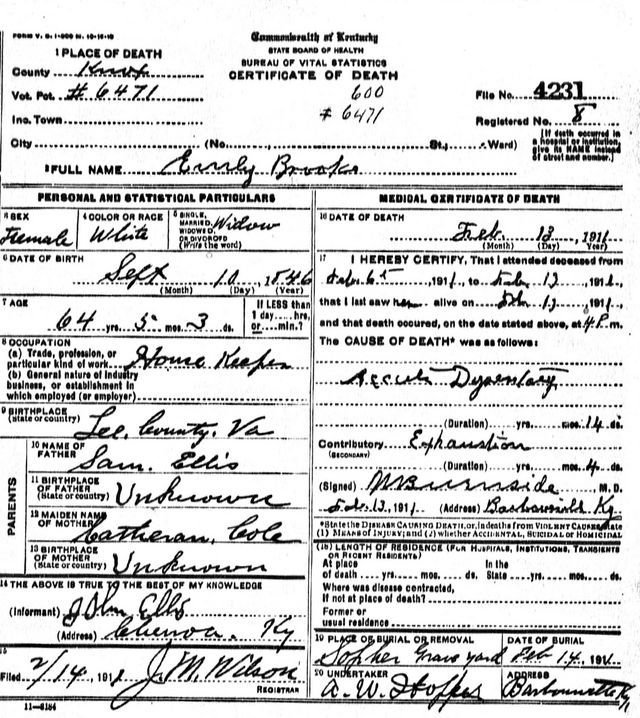 FORM V. S. 1-500 M. 10-15-10
Commonwealth of Kentucky
STATE BOARD OF HEALTH
BUREAU OF VITAL STATISTICS
CERTIFICATE OF DEATH
1 PLACE OF DEATH
County Knox
Vot. Pct. # 6471
600
# 6471
File No. 4231
Inc. Town
Registered No. 8
City (No. St.; Ward)
[If death occurred in a hospital or institution, give its NAME instead of street and number.]
2 FULL NAME Emily Brooks
PERSONAL AND STATISTICAL PARTICULARS
3 SEX Female
4 COLOR OR RACE White
5 SINGLE, MARRIED, WIDOWED, OR DIVORCED (Write the word) Widow
6 DATE OF BIRTH Sept 10 1846
(Month) (Day) (Year)
7 AGE 64 yrs. 5 mos. 3 ds.
If LESS than 1 day.... hrs. or.... min.?
8 OCCUPATION
(a) Trade, profession, or particular kind of work House Keeper
(b) General nature of industry business, or establishment in which employed (or employer)
9 BIRTHPLACE (State or country) Lee County, Va
PARENTS
10 NAME OF FATHER Sam. Ellis
11 BIRTHPLACE OF FATHER (State or country) Unknown
12 MAIDEN NAME OF MOTHER Catheran Cole
13 BIRTHPLACE OF MOTHER (State or country) Unknown
14 THE ABOVE IS TRUE TO THE BEST OF MY KNOWLEDGE
(Informant) John Ellis
(Address) Ky
15
Filed 2/14 1911 J. M. Wilson
REGISTRAR
11-8184
MEDICAL CERTIFICATE OF DEATH
16 DATE OF DEATH
Feb 13, 1911
(Month) (Day) (Year)
17 I HEREBY CERTIFY, That I attended deceased from
Feb. 6th, 1911, to Feb. 13, 1911,
that I last saw her alive on Feb 13, 1911,
and that death occured, on the date stated above, at 4 P.m.
The CAUSE OF DEATH* was as follows:
Accute Dysentary
(Duration) yrs. mos. 14 ds.
Contributory (SECONDARY) Exhaustion
(Duration) yrs. mos. 4 ds.
(Signed) Burnside M. D.
Feb. 13, 1911 (Address) Barbourville Ky.
*State the DISEASE CAUSING DEATH, or, in deaths from VIOLENT CAUSES state (1) MEANS OF INJURY; and (2) whether ACCIDENTAL, SUICIDAL or HOMICIDAL
(18) LENGTH OF RESIDENCE (FOR HOSPITALS, INSTITUTIONS, TRANSIENTS OR RECENT RESIDENTS)
At place of death yrs. mos. ds. In the State yrs. mos. ds.
Where was disease contracted, If not at place of death?
Former or usual residence
19 PLACE OF BURIAL OR REMOVAL Sopher Grave yard
DATE OF BURIAL Feb 14, 1911
20 UNDERTAKER A. W. Hopper
ADDRESS Barbourville Ky